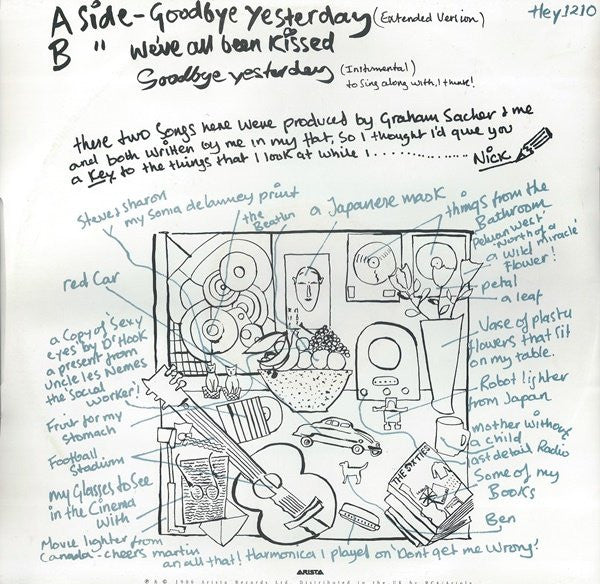 A Side - Goodbye yesterday (Extended Version)
they 1210
B " We've all been Kissed
Goodbye yesterday (Instrumental)
to sing along with, I think!
these two songs here were produced by Graham Sacher & me
and both written by me in my flat, so I thought I'd give you
a key to the things that I look at while I..................
Nick
Steve & Sharon
my Sonia delauney print
the Beatles
a Japanese mask
things from the
Bathroom
Pelican West
'North of a
a Wild miracle'
flower!
petal
a leaf
red Car
Vase of plastic
flowers that fit
on my table.
a Copy of 'Sexy
eyes' by Dr Hook
a present from
Uncle les Nemes
the Social
Worker!
Robot lighter
from Japan
Fruit for my
stomach
mother without
a child
Football
Stadium
last detail Radio
Some of my
Books
THE SIXTIES
my Glasses to See
in the Cinema
With
Ben
Movie lighter from
Canada - cheers martin
an all that!
Harmonica I played on 'Dont get me Wrong'
ARISTA